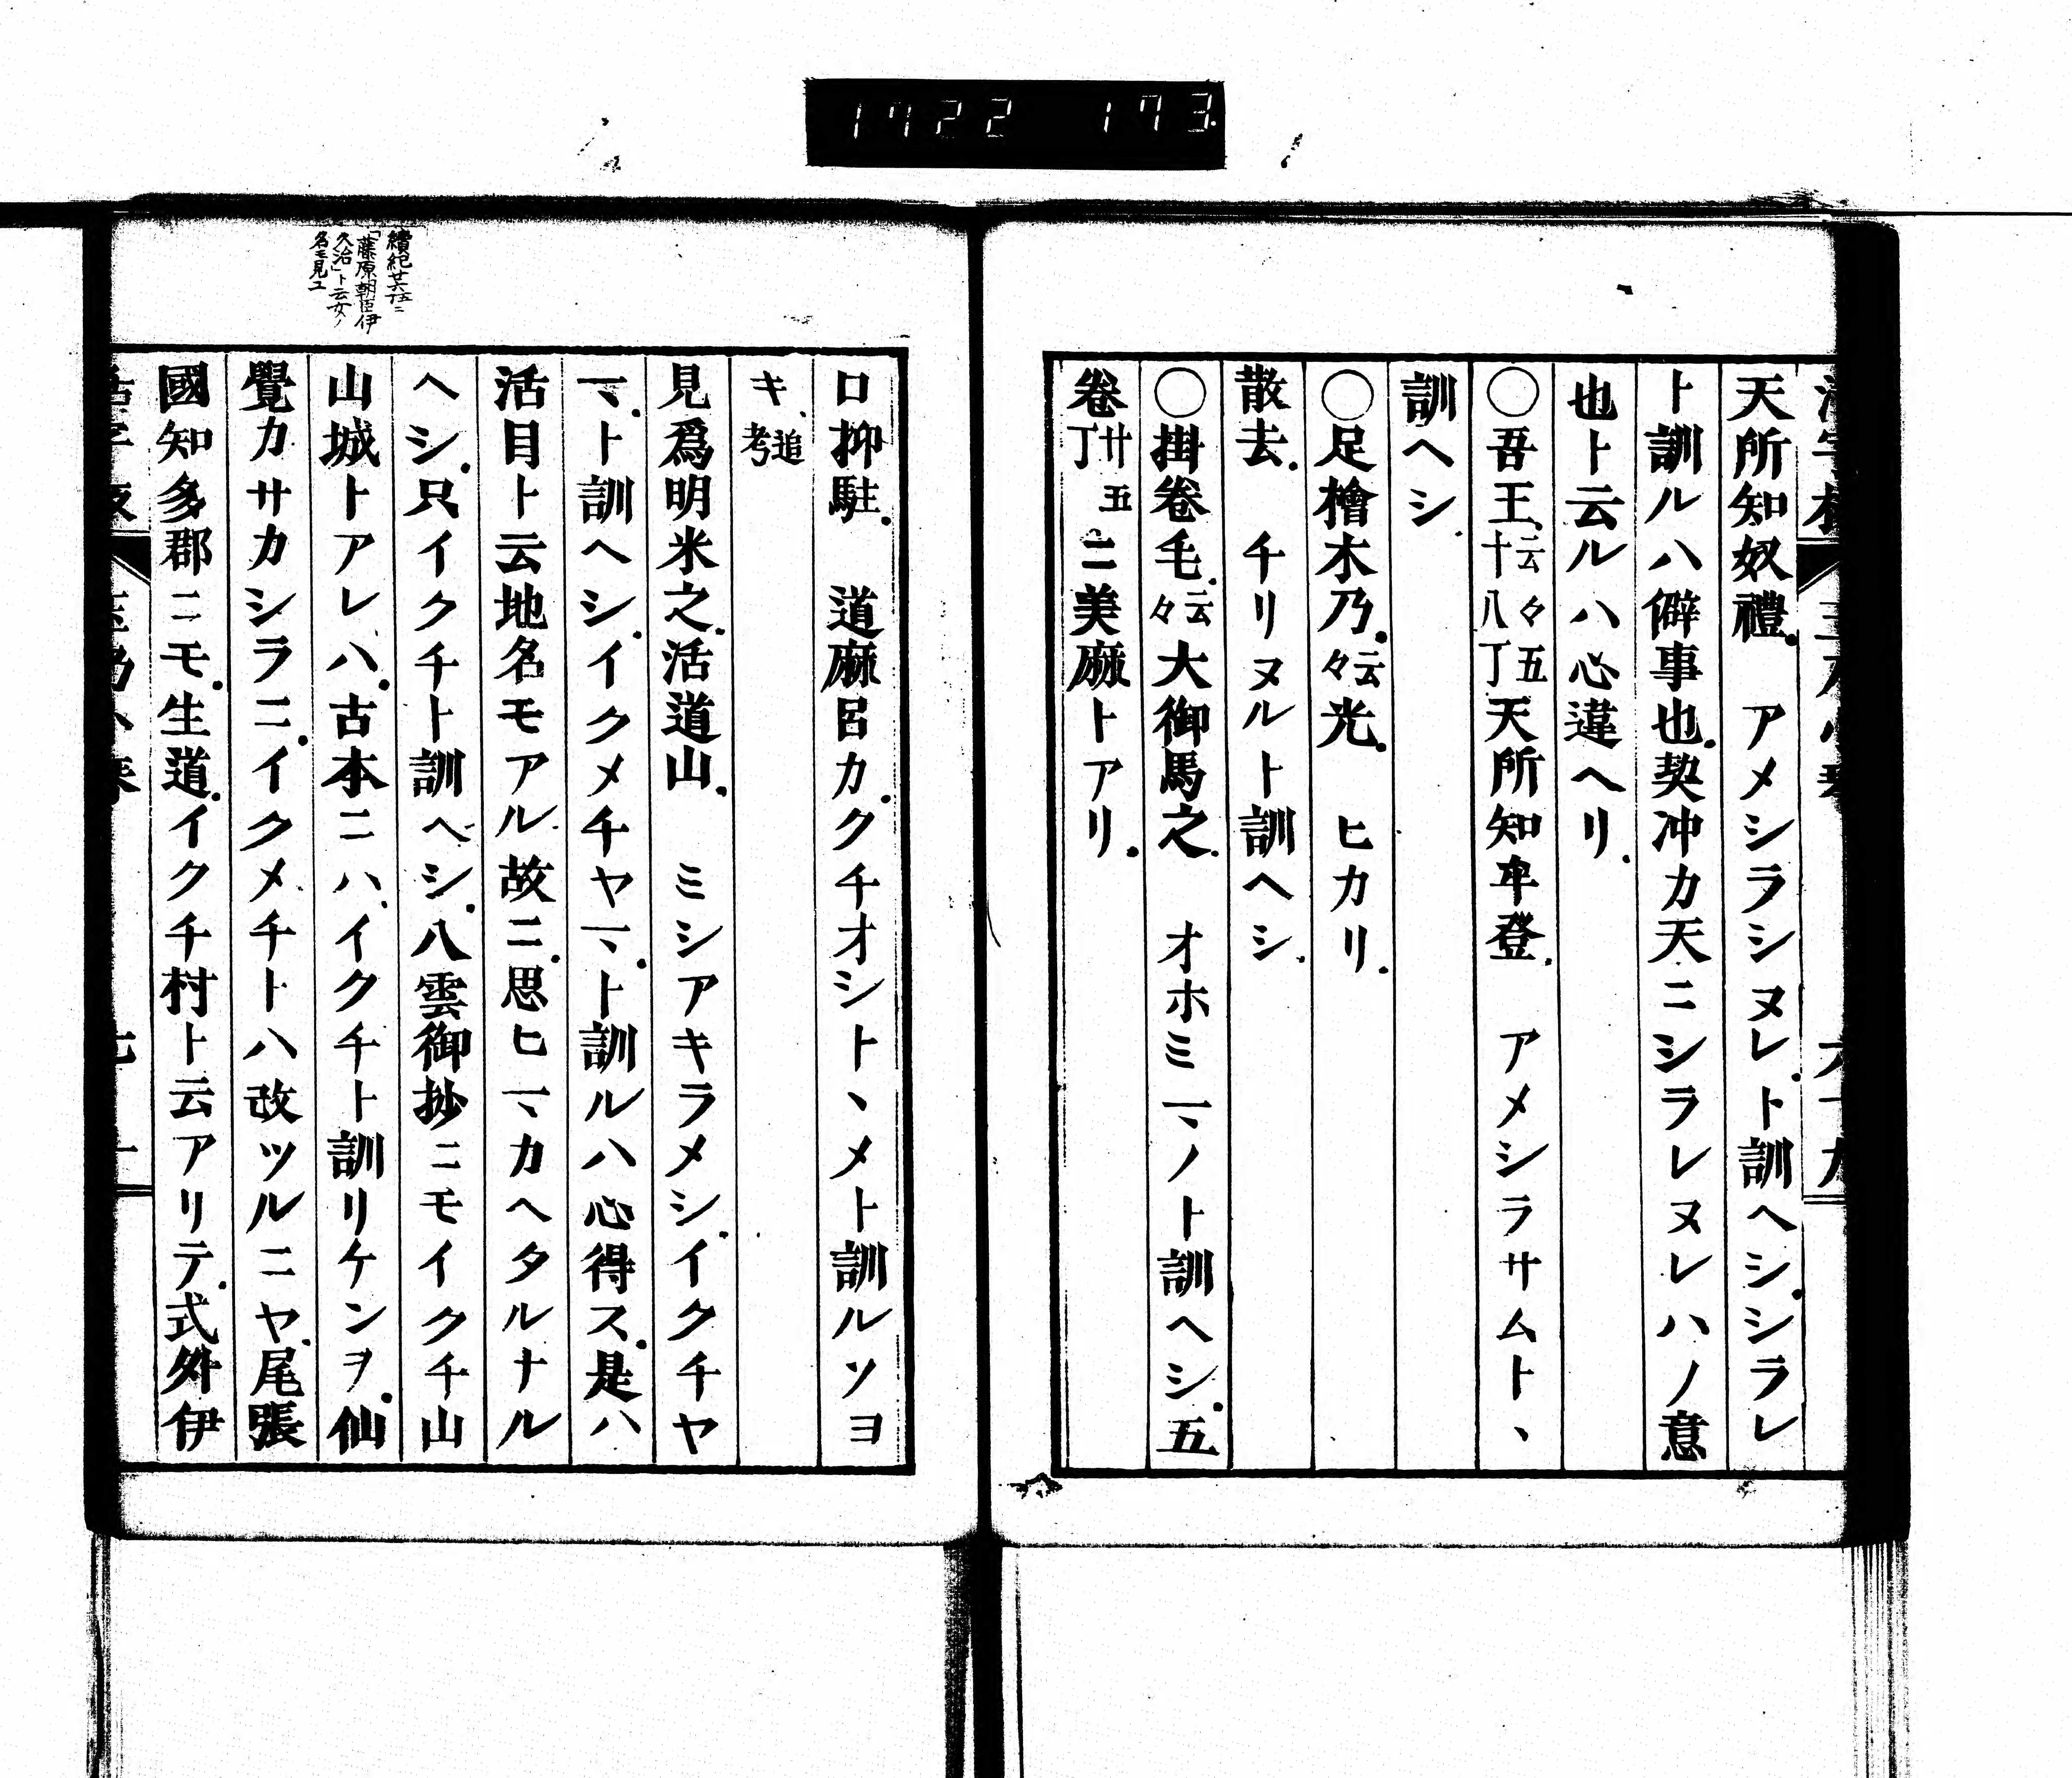 1722 173
天所知奴禮。 アメシラシヌレ。ト訓ヘシ。シラレ
ト訓ルハ僻事也。契沖カ天ニシラレヌレハノ意
也ト云ルハ心違ヘリ。
〇吾王。云々五十八丁天所知牟登。 アメシラサムト、
訓ヘシ。
〇足檜木乃。云々光。 ヒカリ。
散去。 チリヌルト訓ヘシ。
〇掛卷毛。云々大御馬之。 オホミマノト訓ヘシ。五
卷廿五丁ニ美麻トアリ。
口抑駐。 道麻呂カ。クチオシトヽメト訓ルソヨ
キ、追考
見爲明米之。活道山。 ミシアキラメシ。イクチヤ
マ。ト訓ヘシ。イクメチヤマ。ト訓ルハ心得ス。是ハ
活目ト云地名モアル故ニ。思ヒマカヘタルナル
ヘシ。只イクチト訓ヘシ。八雲御抄ニモイクチ山
山城トアレハ。古本ニハ、イクチト訓リケンヲ。仙
覺カサカシラニ。イクメチトハ改ツルニヤ。尾張
國知多郡ニモ。生道。イクチ村ト云アリテ。式外伊
續紀廿六五ニ
「藤原朝臣伊
久治」ト云女ノ
名モ見エ